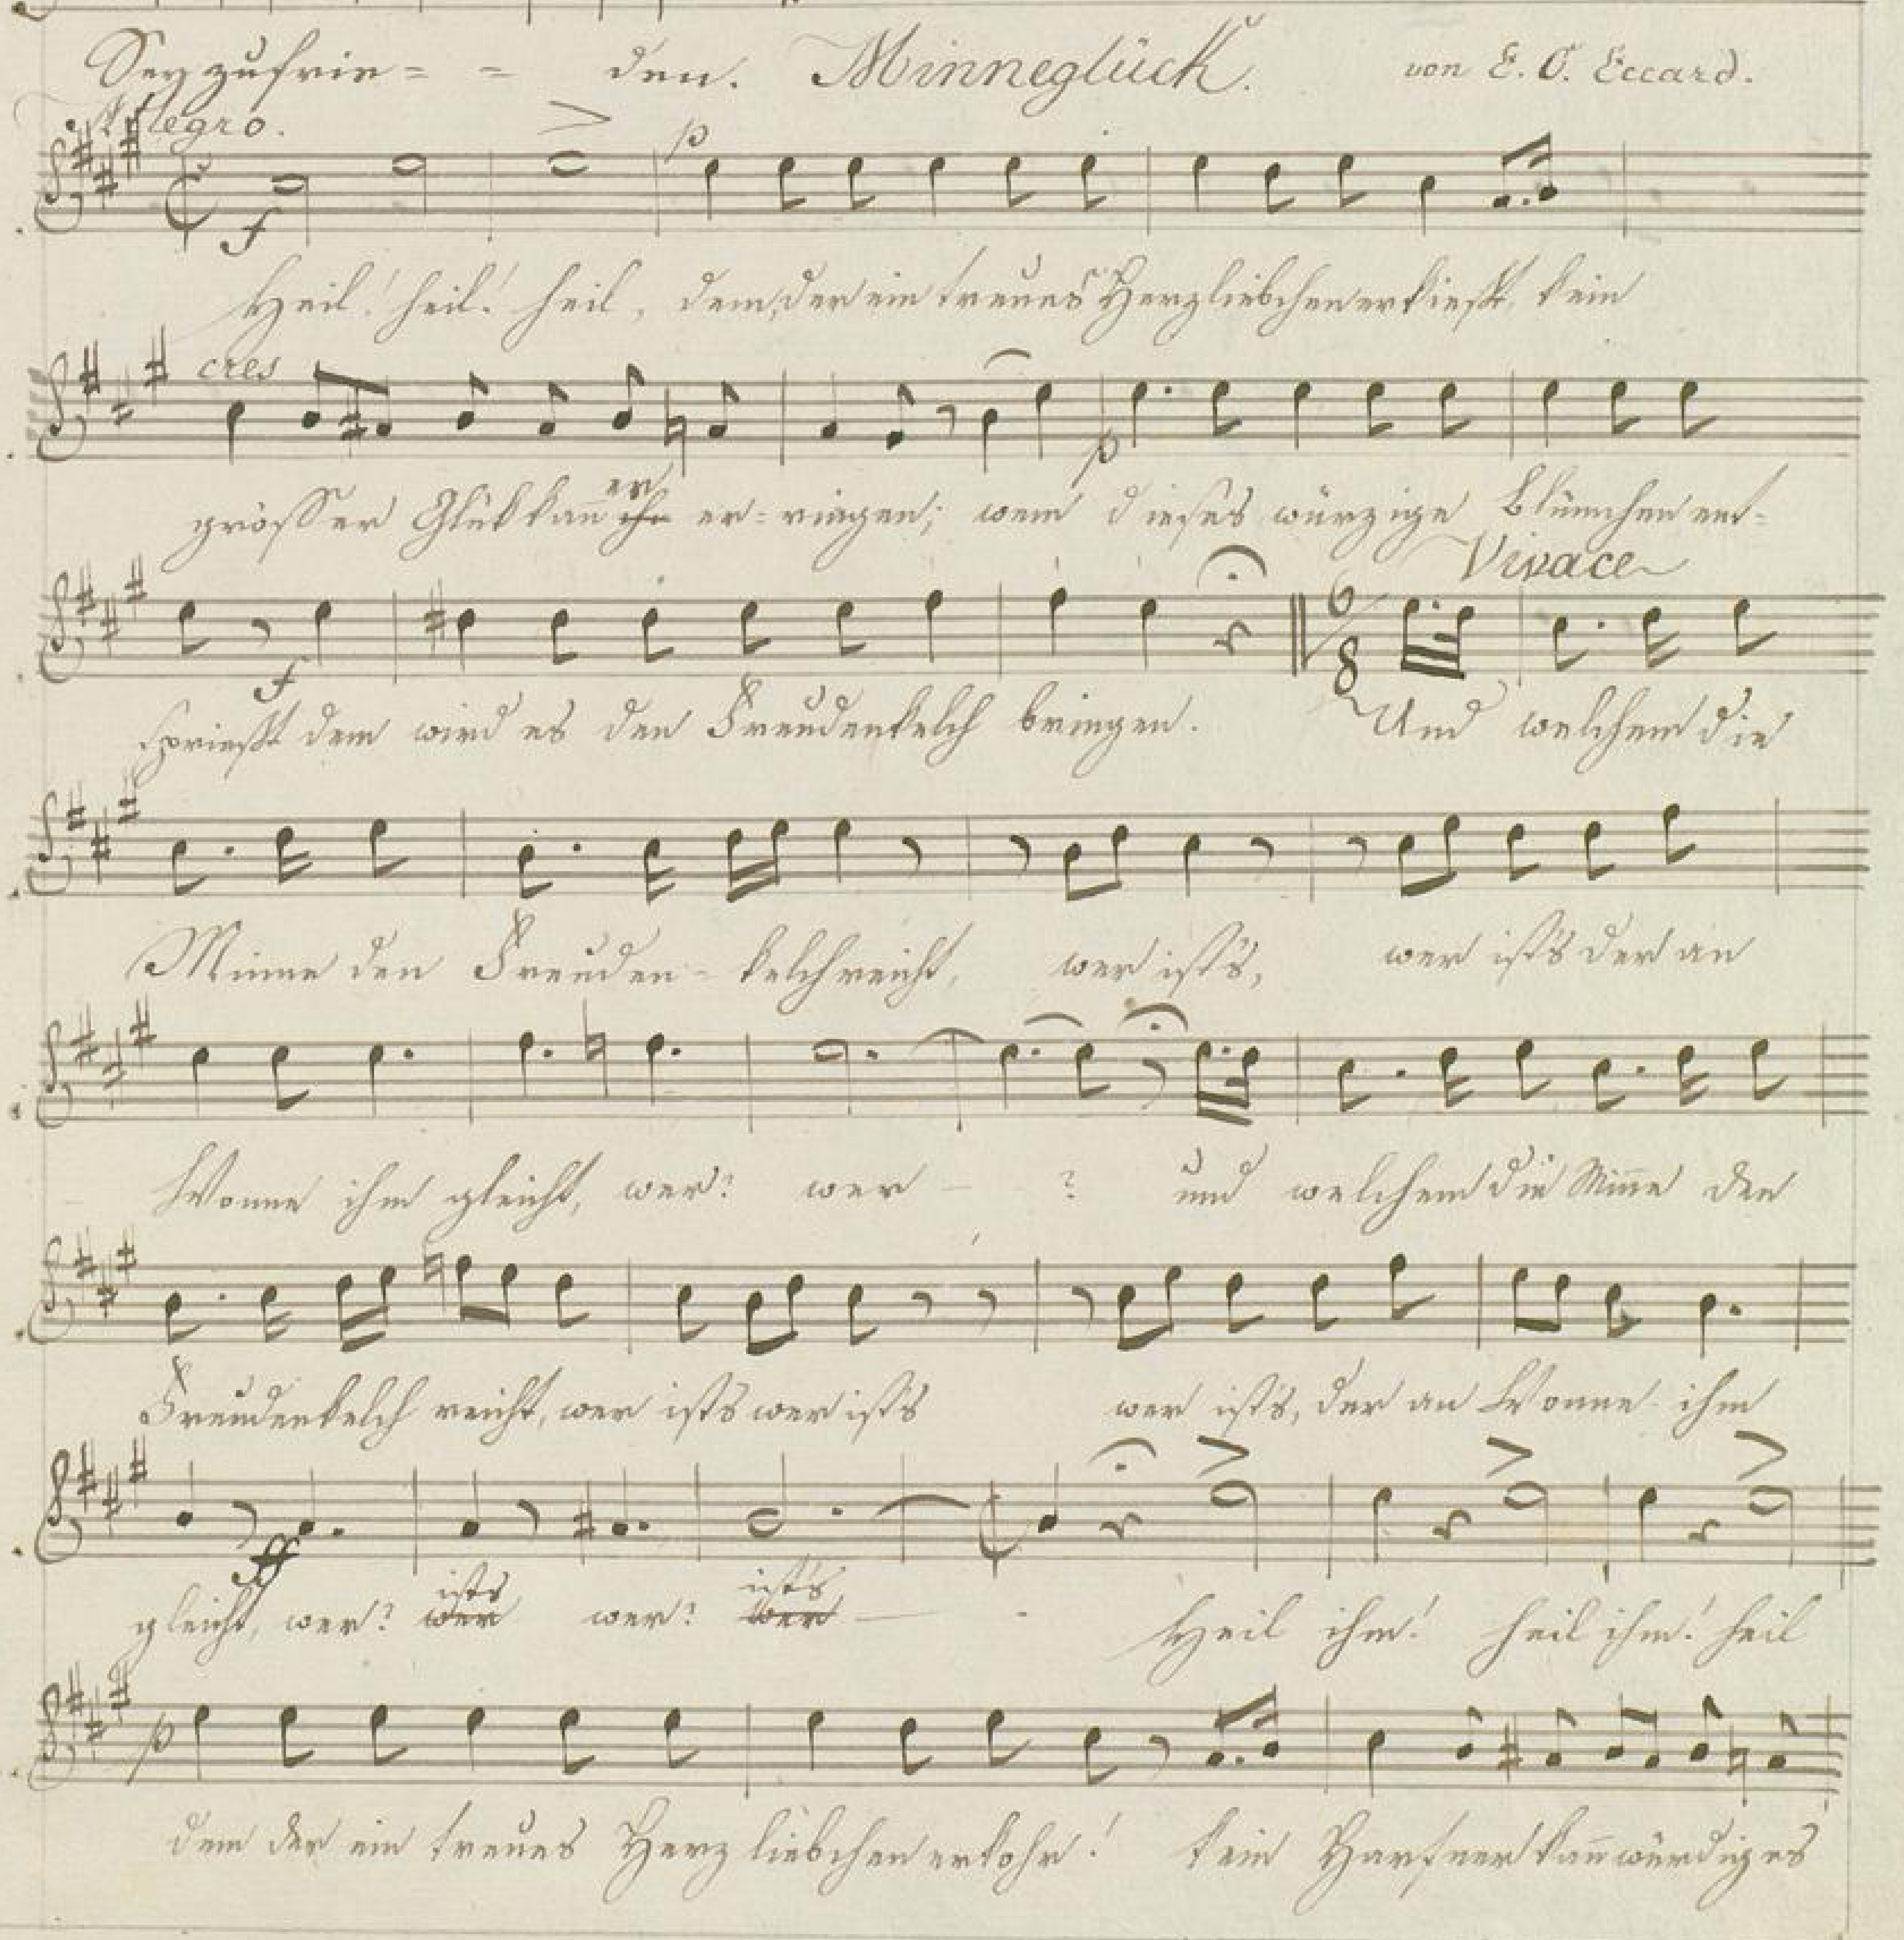 Sey zufrie= = den. Minneglück. von E. C. Eccard.
Allegro.
p
f
Heil! heil! heil, dem, der ein treues Herzliebchen erkießt, kein
cres
p
er
grösser Glük kan̄ ihn er=ringen; wem dieses würzige Blümchen ent=
Vivace
6/8
f
sprießt dem wird es den Freudenkelch bringen. Und welchem die
Minne den Freuden= kelch reicht, wer ist's, wer ist's der an
Wonne ihm gleicht, wer? wer – ? und welchem die Min̄e den
Freudenkelch reicht, wer ists wer ist's wer ist's, der an Wonne ihm
ff
ists ist's
gleicht, wer? wer wer? wer – Heil ihm! heil ihm! heil
p
dem der ein treues Herzliebchen erkohr! kein Harfner kan̄ würdiges